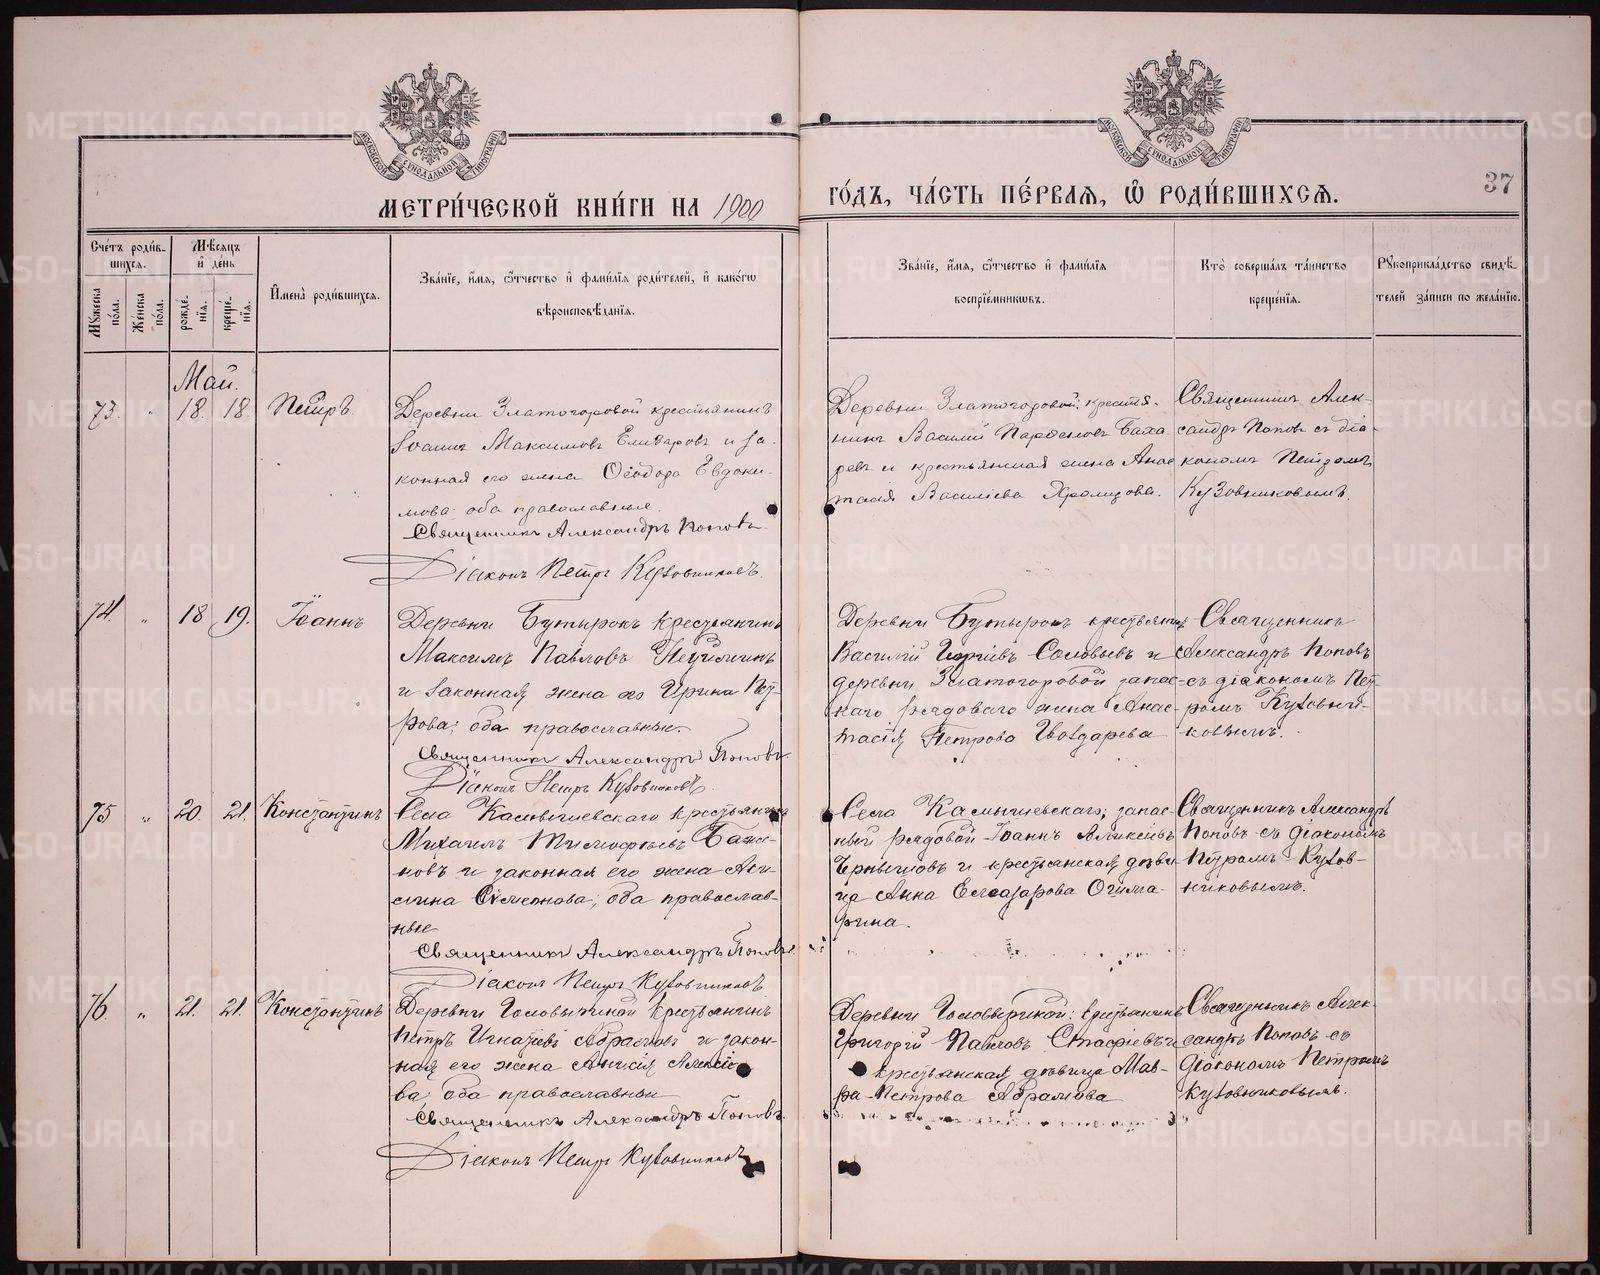 МЕТРИ́ЧЕСКОЙ КНИ́ГИ НА 1900
ГО́ДЪ, ЧА́СТЬ ПЕ́РВАЯ, Ѽ РОДИ́ВШИХСѦ.
37
Сче́тъ роди́в-
шихсѧ.
Мꙋ́жеска по́ла.
Же́нска по́ла.
Мѣ́сѧцъ
и҆ де́нь
рожде́нїѧ.
креще́нїѧ.
И҆мена̀ роди́вшихсѧ.
Зва́нїе, и҆́мѧ, ѻ҆́тчество и҆ фами́лїѧ роди́телей, и҆ како́гѡ
вѣроисповѣ́данїѧ.
Зва́нїе, и҆́мѧ, ѻ҆́тчество и҆ фами́лїѧ
воспрїе́мникѡвъ.
Кто̀ соверша́лъ та́инство
креще́нїѧ.
Рꙋкоприкла́дство свидѣ́-
телей за́писи по жела́нїю.
Май.
73. " 18. 18. Петръ.
Деревни Златогоровой крестьянинъ
Іоаннъ Максимовъ Елизаровъ и за-
конная его жена Ѳеодора Евдоки-
мова; оба православные.
Священникъ Александръ Поповъ
Діаконъ Петръ Кузовниковъ.
Деревни Златогоровой: крестья-
нинъ Василий Парѳеновъ Заха
ровъ и крестьянская жена Анас
тасія Василіева
Священникъ Алек-
сандръ Поповъ съ діа-
кономъ Петромъ
Кузовниковымъ.
74. " 18 19. Іоаннъ
Деревни Бутырокъ крестьянинъ
Максимъ Павловъ
и законная жена его Ирина Пет-
рова; оба православные.
Священникъ Александръ Поповъ
Діаконъ Петръ Кузовниковъ.
Деревни Бутырокъ крестьянинъ
Василій Соловьевъ и
деревни Златогоровой запас-
наго рядоваго жена Анас-
тасія Петрова Гвоздарева
Священникъ
Александръ Поповъ
съ діакономъ Пет-
ромъ Кузовни-
ковымъ.
75 " 20. 21. Константинъ
Села Камышевскаго крестьянинъ
Михаилъ Тимоѳѣевъ Баже-
новъ и законная его жена
Симеонова; оба православ-
ные
Священникъ Александръ Поповъ
Діаконъ Петръ Кузовниковъ
Села Камышевскаго; запас-
ный рядовой Іоаннъ Алексіевъ
Чернышовъ и крестьянская дѣви
ца Анна Елеазарова
Священникъ Александръ
Поповъ съ діакономъ
Петромъ Кузов-
никовымъ.
76 " 21. 21. Константинъ
Деревни Головыриной крестьянинъ
Петръ Игнатіевъ Абрамовъ и закон-
ная его жена Анисія Алексіе
ва; оба православны
Священникъ Александръ Поповъ.
Діаконъ Петръ Кузовниковъ
Деревни Головыриной: крестьянинъ
Григорій Павловъ и
крестьянская дѣвица Мав-
ра Петрова Абрамова
Священникъ Алек-
сандръ Поповъ съ
діакономъ Петромъ
Кузовниковымъ.
METRIKI.GASO-URAL.RU